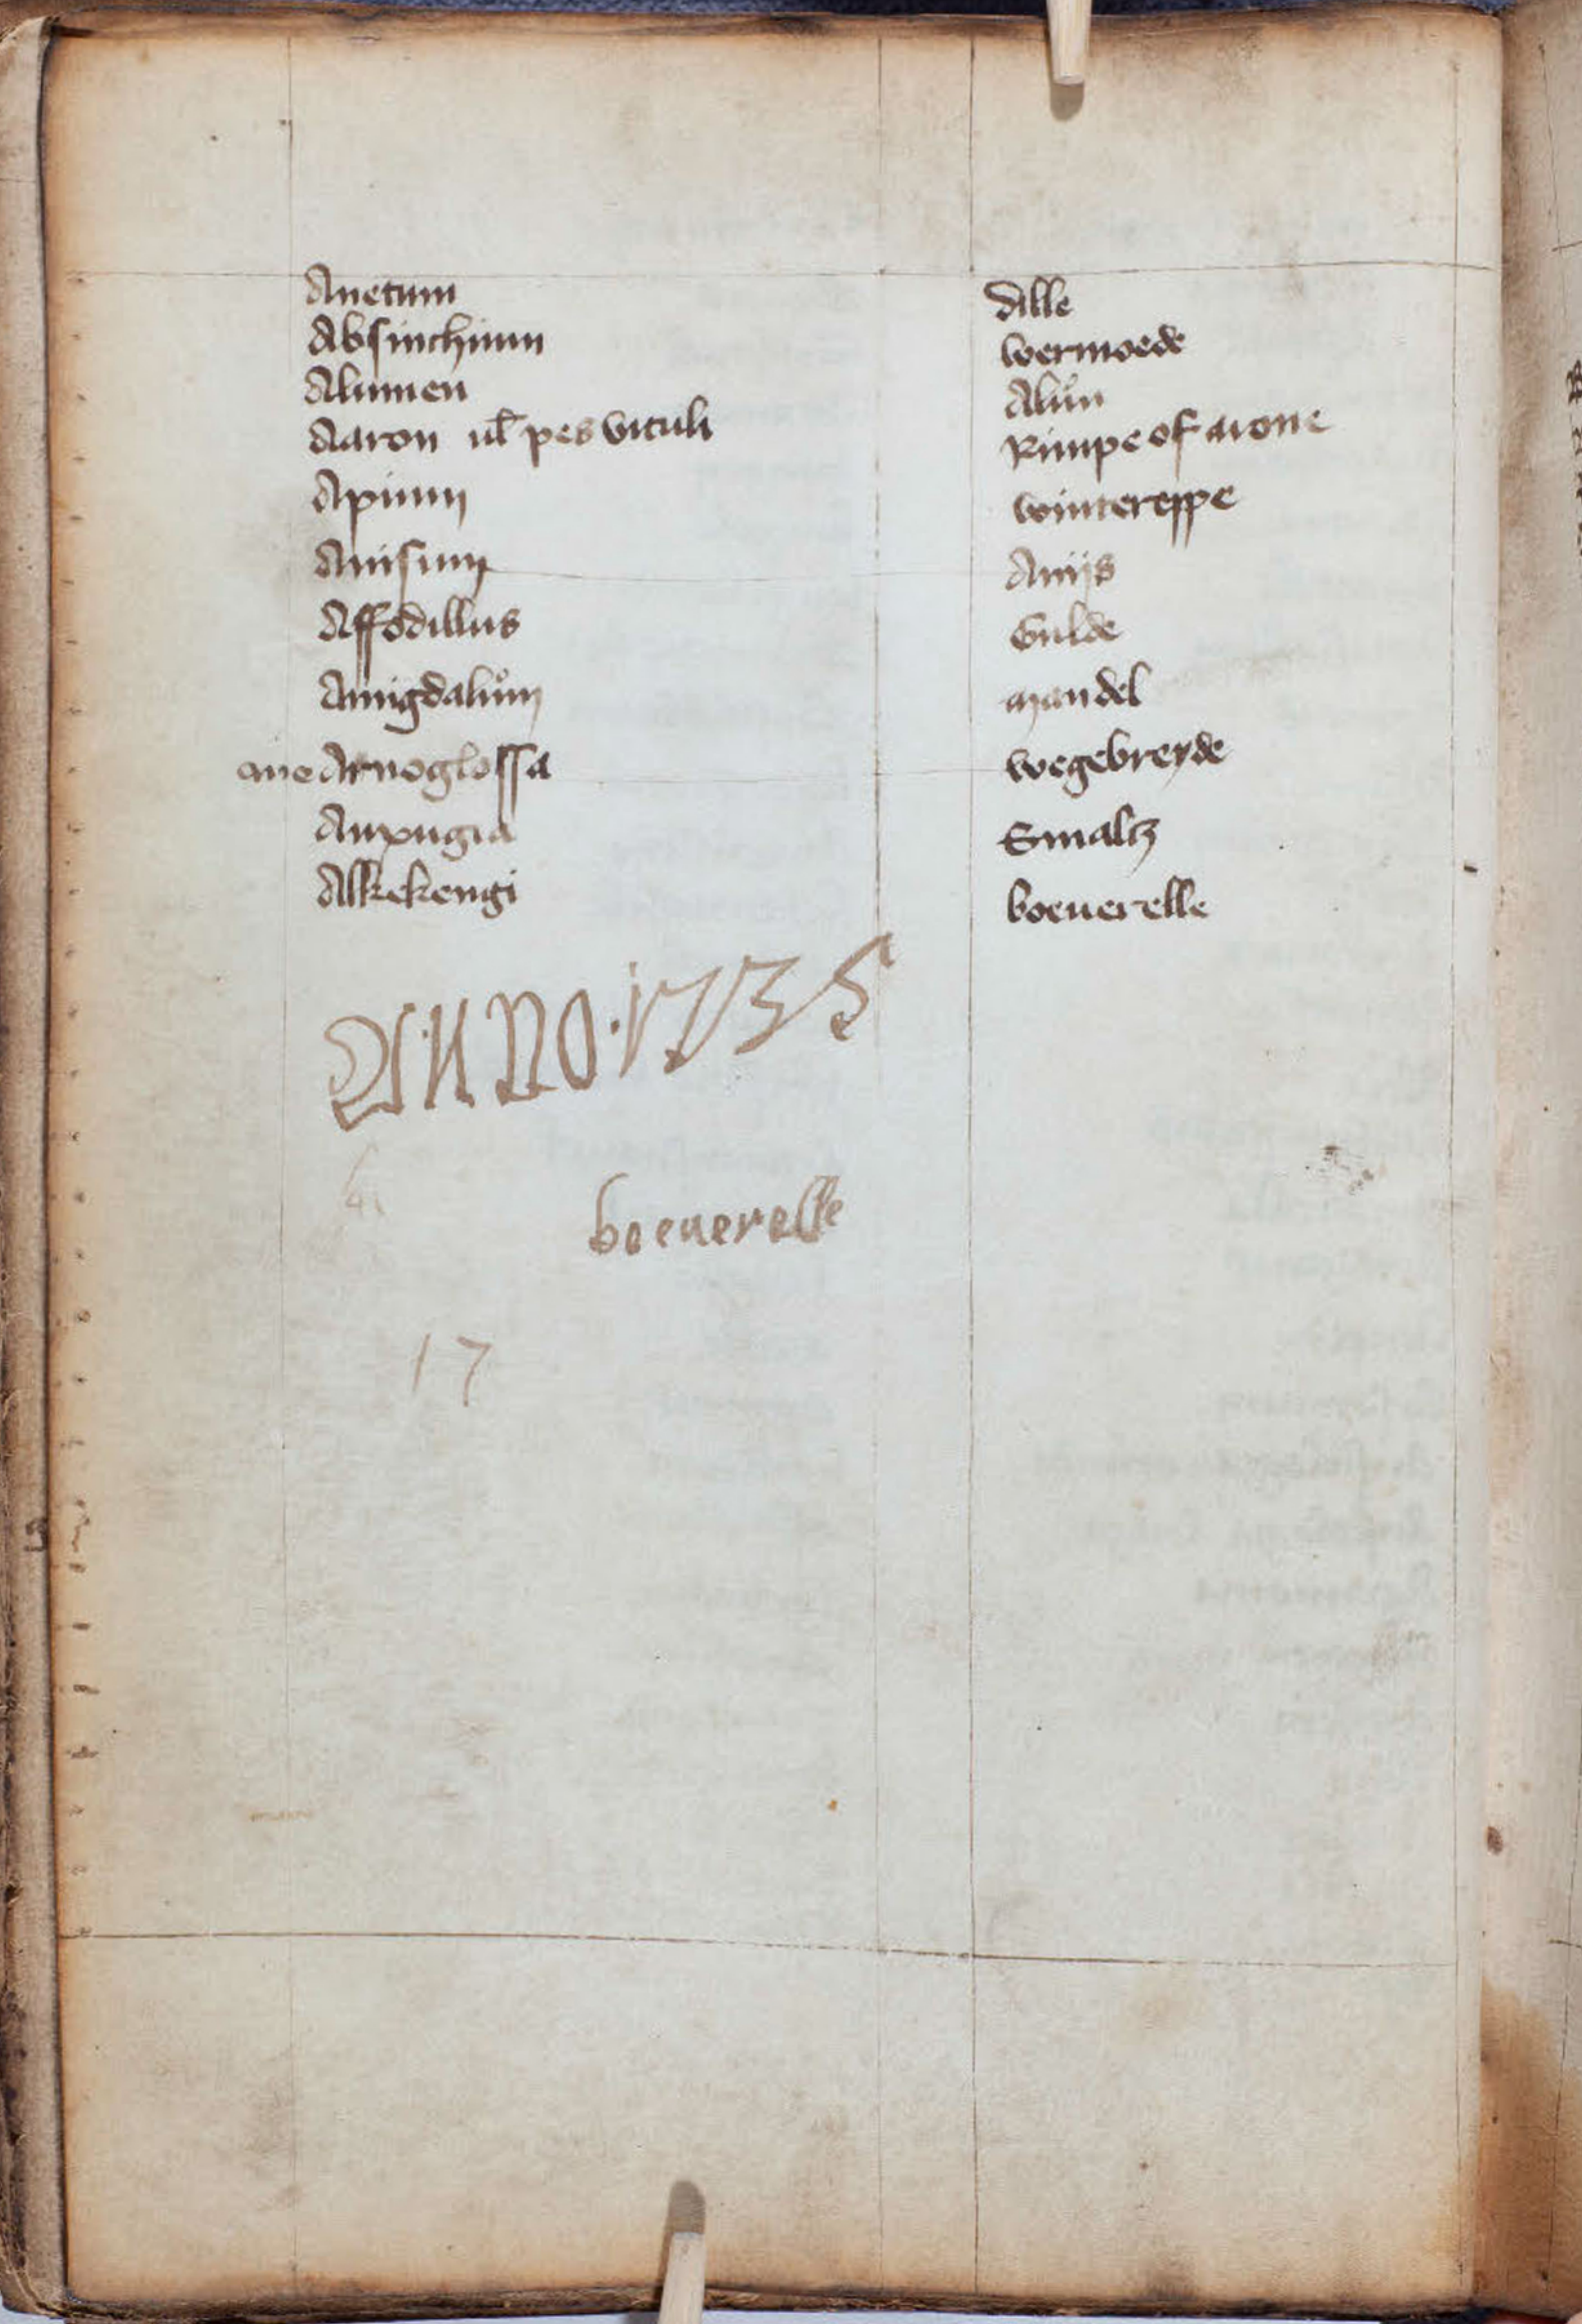 Anetum Dille
Absinchium wermoede
Alumen Alun
Aaron ul pes vituli Rimpe of arone
Apium wintereppe
Anisum Aniis
Affodillus Gulde
Amigdalum mandel
Arnoglossa wegebreyde
Auxugia Smaltz
Alkekengi boeuerelle
ANNO·1735
boeuerelle
17